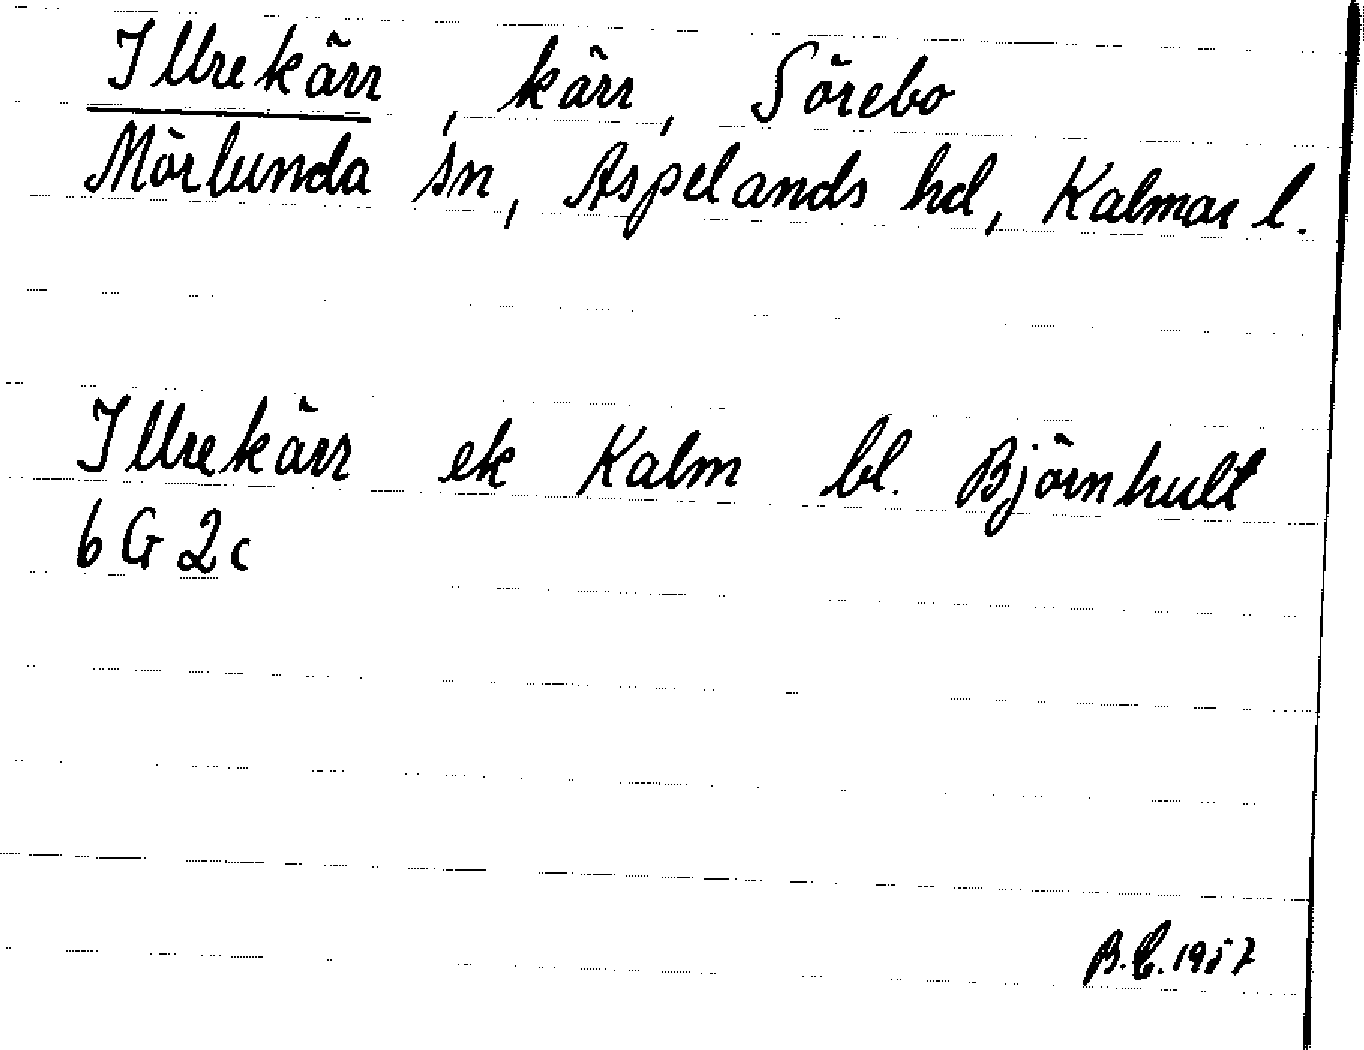 Illrekärr, kärr, Sörebo
Mörlunda sn, Aspelands hd, Kalmar l.
Illrekärr ek Kalm bl. Björnhult
6 G 2c
1957